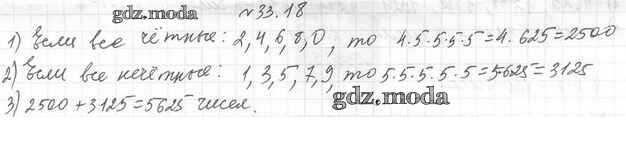 gdz.moda № 33.18
1) Если все чётные: 2, 4, 6, 8, 0, то 4·5·5·5·5=4·625=2500
2) Если все нечётные: 1, 3, 5, 7, 9, то 5·5·5·5·5=5·625=3125
3) 2500+3125=5625 чисел.
gdz.moda